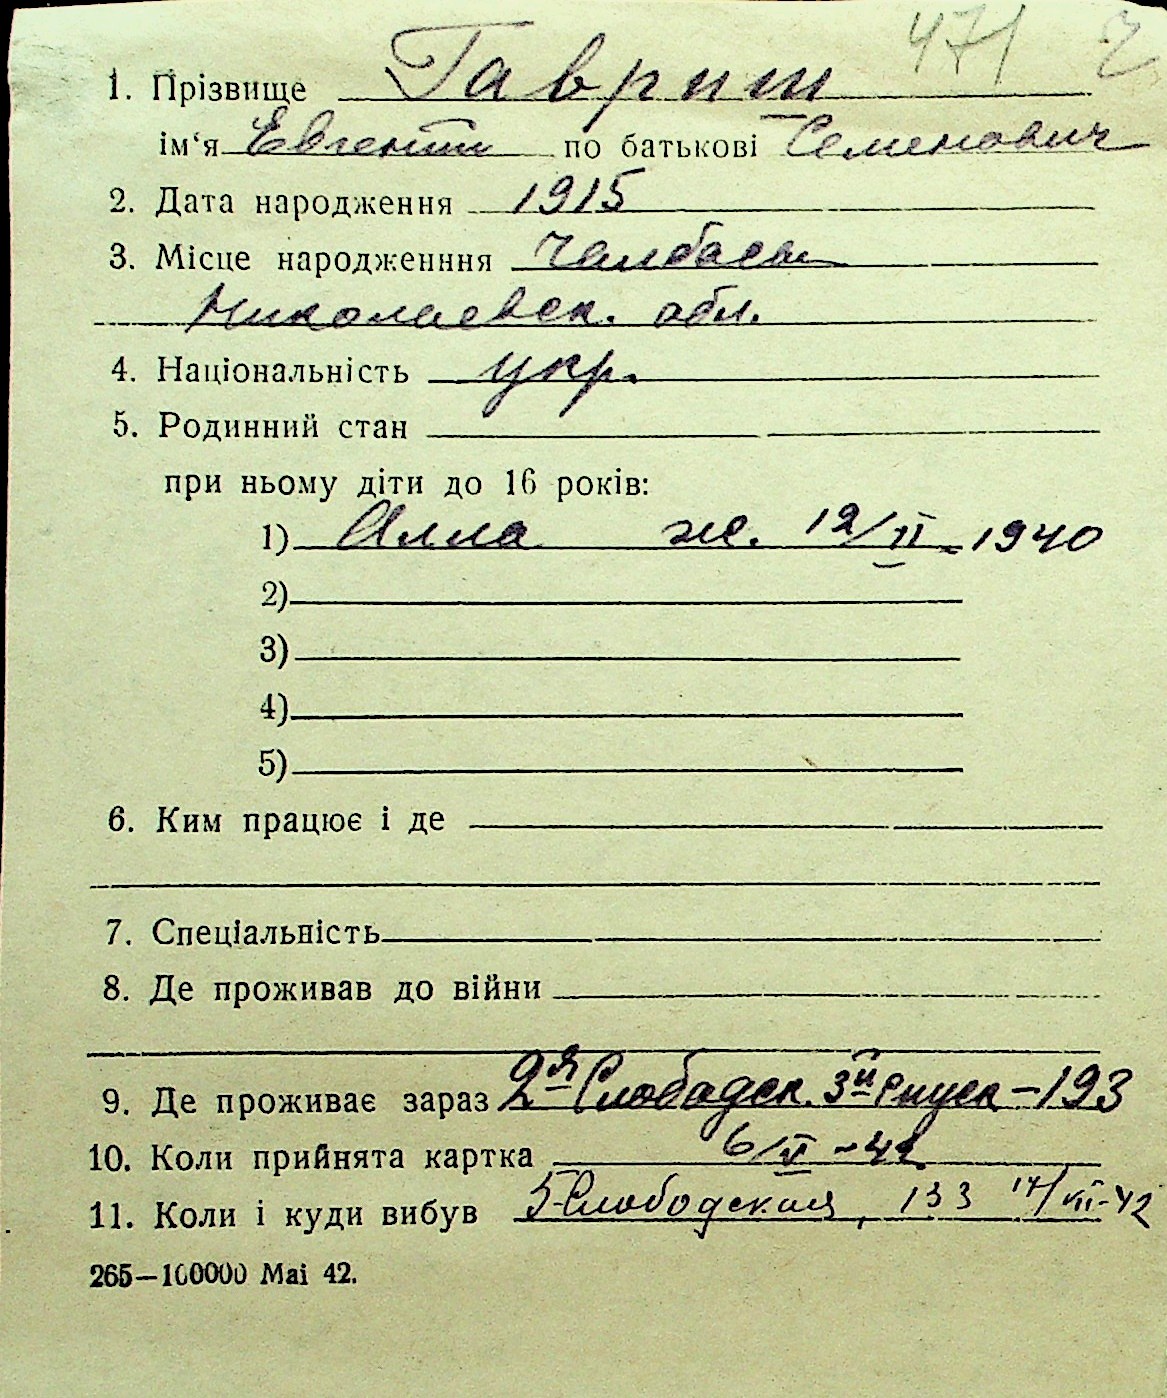 471
1. Прізвище Гавриш
ім‘я Евгений по батькові Семенович
2. Дата народження 1915
3. Місце народженння Чалбасы
Николаевск. обл.
4. Національність укр.
5. Родинний стан
при ньому діти до 16 років:
1) Алла ж. 12/II - 1940
2)
3)
4)
5)
6. Ким працює і де
7. Спеціальність
8. Де проживав до війни
9. Де проживає зараз 2я Слободск. 3й спуск - 193
10. Коли прийнята картка 6/X - 42
11. Коли і куди вибув 5 Слободская, 133 17/XII-42
265—100000 Mai 42.